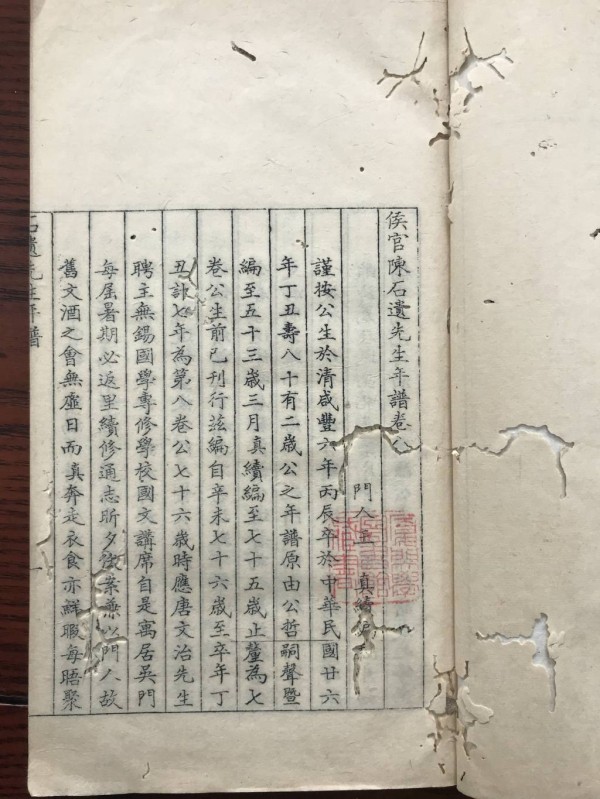 侯官陳石遺先生年譜卷八
門人王真續編
謹按公生於清咸豐六年丙辰卒於中華民國廿六
年丁丑壽八十有二歲公之年譜原由公哲嗣聲暨
編至五十三歲三月真續編至七十五歲止釐為七
卷公生前已刊行茲編自辛未七十六歲至卒年丁
丑計七年為第八卷公七十六歲時應唐文治先生
聘主無錫國學專修學校國文講席自是寓居吳門
每屆暑期必返里續修通志昕夕案兼以門人故
舊文酒之會無虛日而真奔走衣食亦鮮暇每晤聚
石遺先生年譜